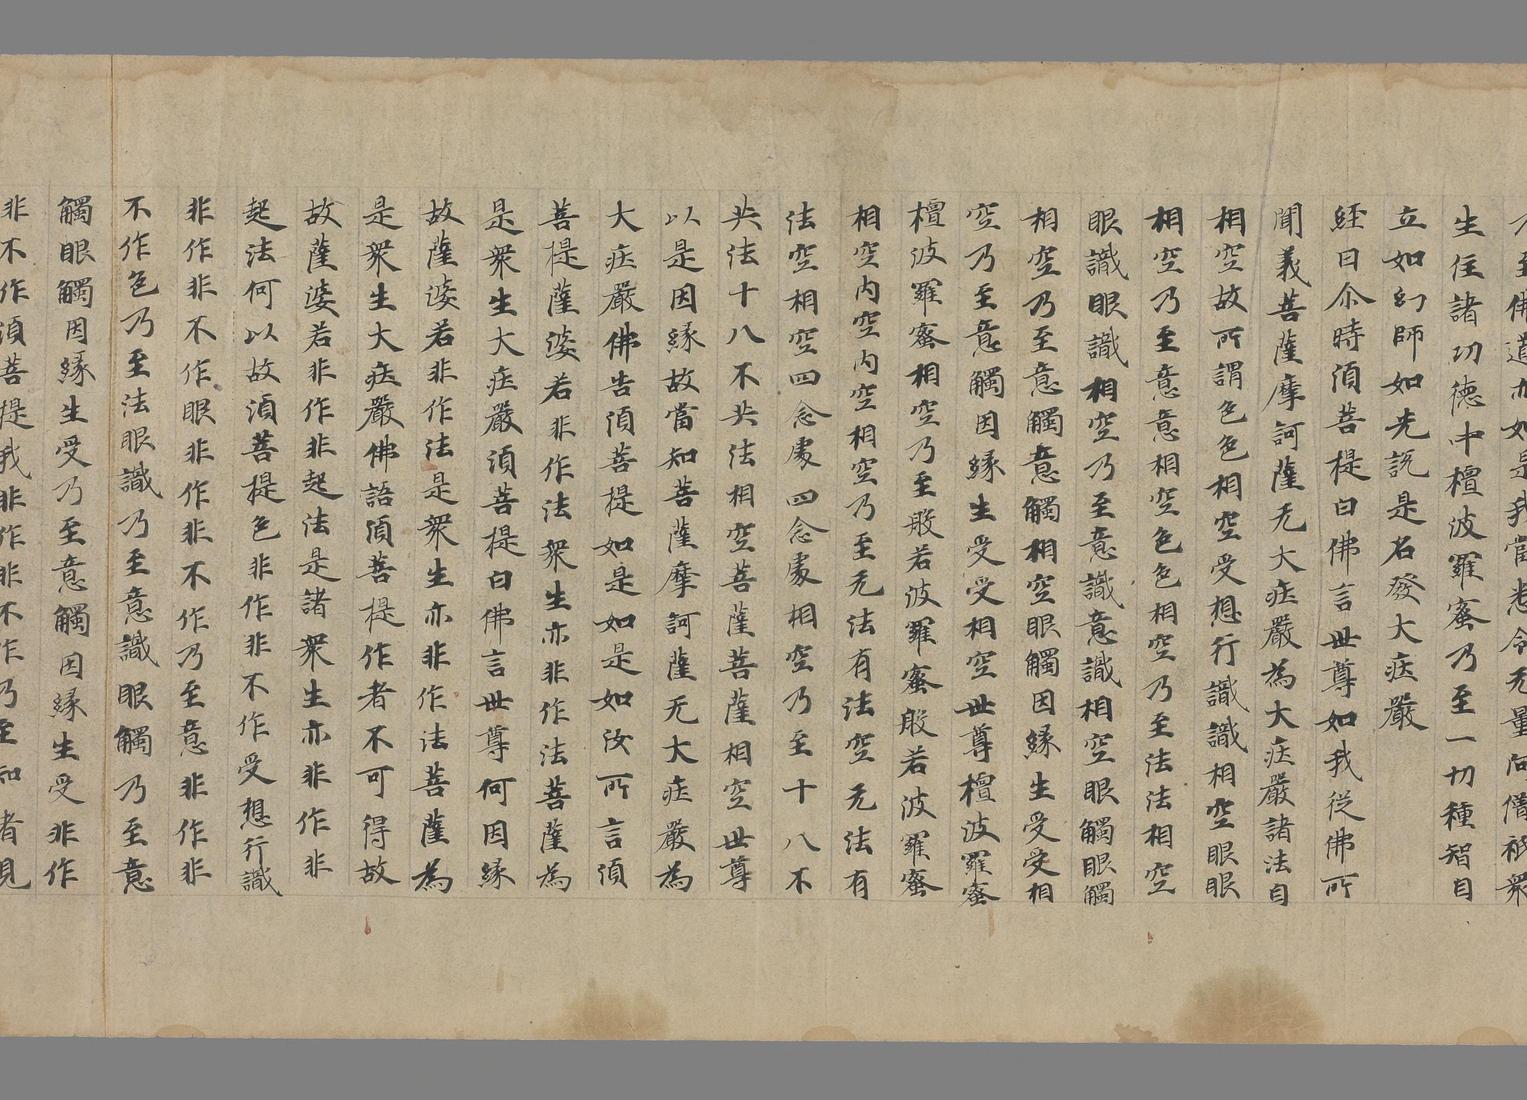 至佛道亦如是我當悉令无量阿僧祇衆
生住諸功德中檀波羅蜜乃至一切種智自
立如幻師如先説是名發大庄嚴
經曰尒時湏菩提白佛言世尊如我從佛所
聞義菩薩摩訶薩无大庄嚴為大庄嚴諸法自
相空故所謂色色相空受想行識識相空眼眼
相空乃至意意相空色色相空乃至法法相空
眼識眼識相空乃至意識意識相空眼觸眼觸
相空乃至意觸意觸相空眼觸因緣生受受相
空乃至意觸因緣生受受相空世尊檀波羅蜜
檀波羅蜜相空乃至般若波羅蜜般若波羅蜜
相空内空内空相空乃至无法有法空无法有
法空相空四念處四念處相空乃至十八不
共法十八不共法相空菩薩菩薩相空世尊
以是因緣故當知菩薩摩訶薩无大庄嚴為
大庄嚴佛告湏菩提如是如是如汝所言湏
菩提薩婆若非作法衆生亦非作法菩薩為
是衆生大庄嚴湏菩提白佛言世尊何因緣
故薩婆若非作法是衆生亦非作法菩薩為
是衆生大庄嚴佛語湏菩提作者不可得故
故薩婆若非作非起法是諸衆生亦非作非
起法何以故湏菩提色非作非不作受想行識
非作非不作眼非作非不作乃至意非作非
不作色乃至法眼識乃至意識眼觸乃至意
觸眼觸因緣生受乃至意觸因緣生受非作
非不作湏菩提我非作非不作乃至知者見